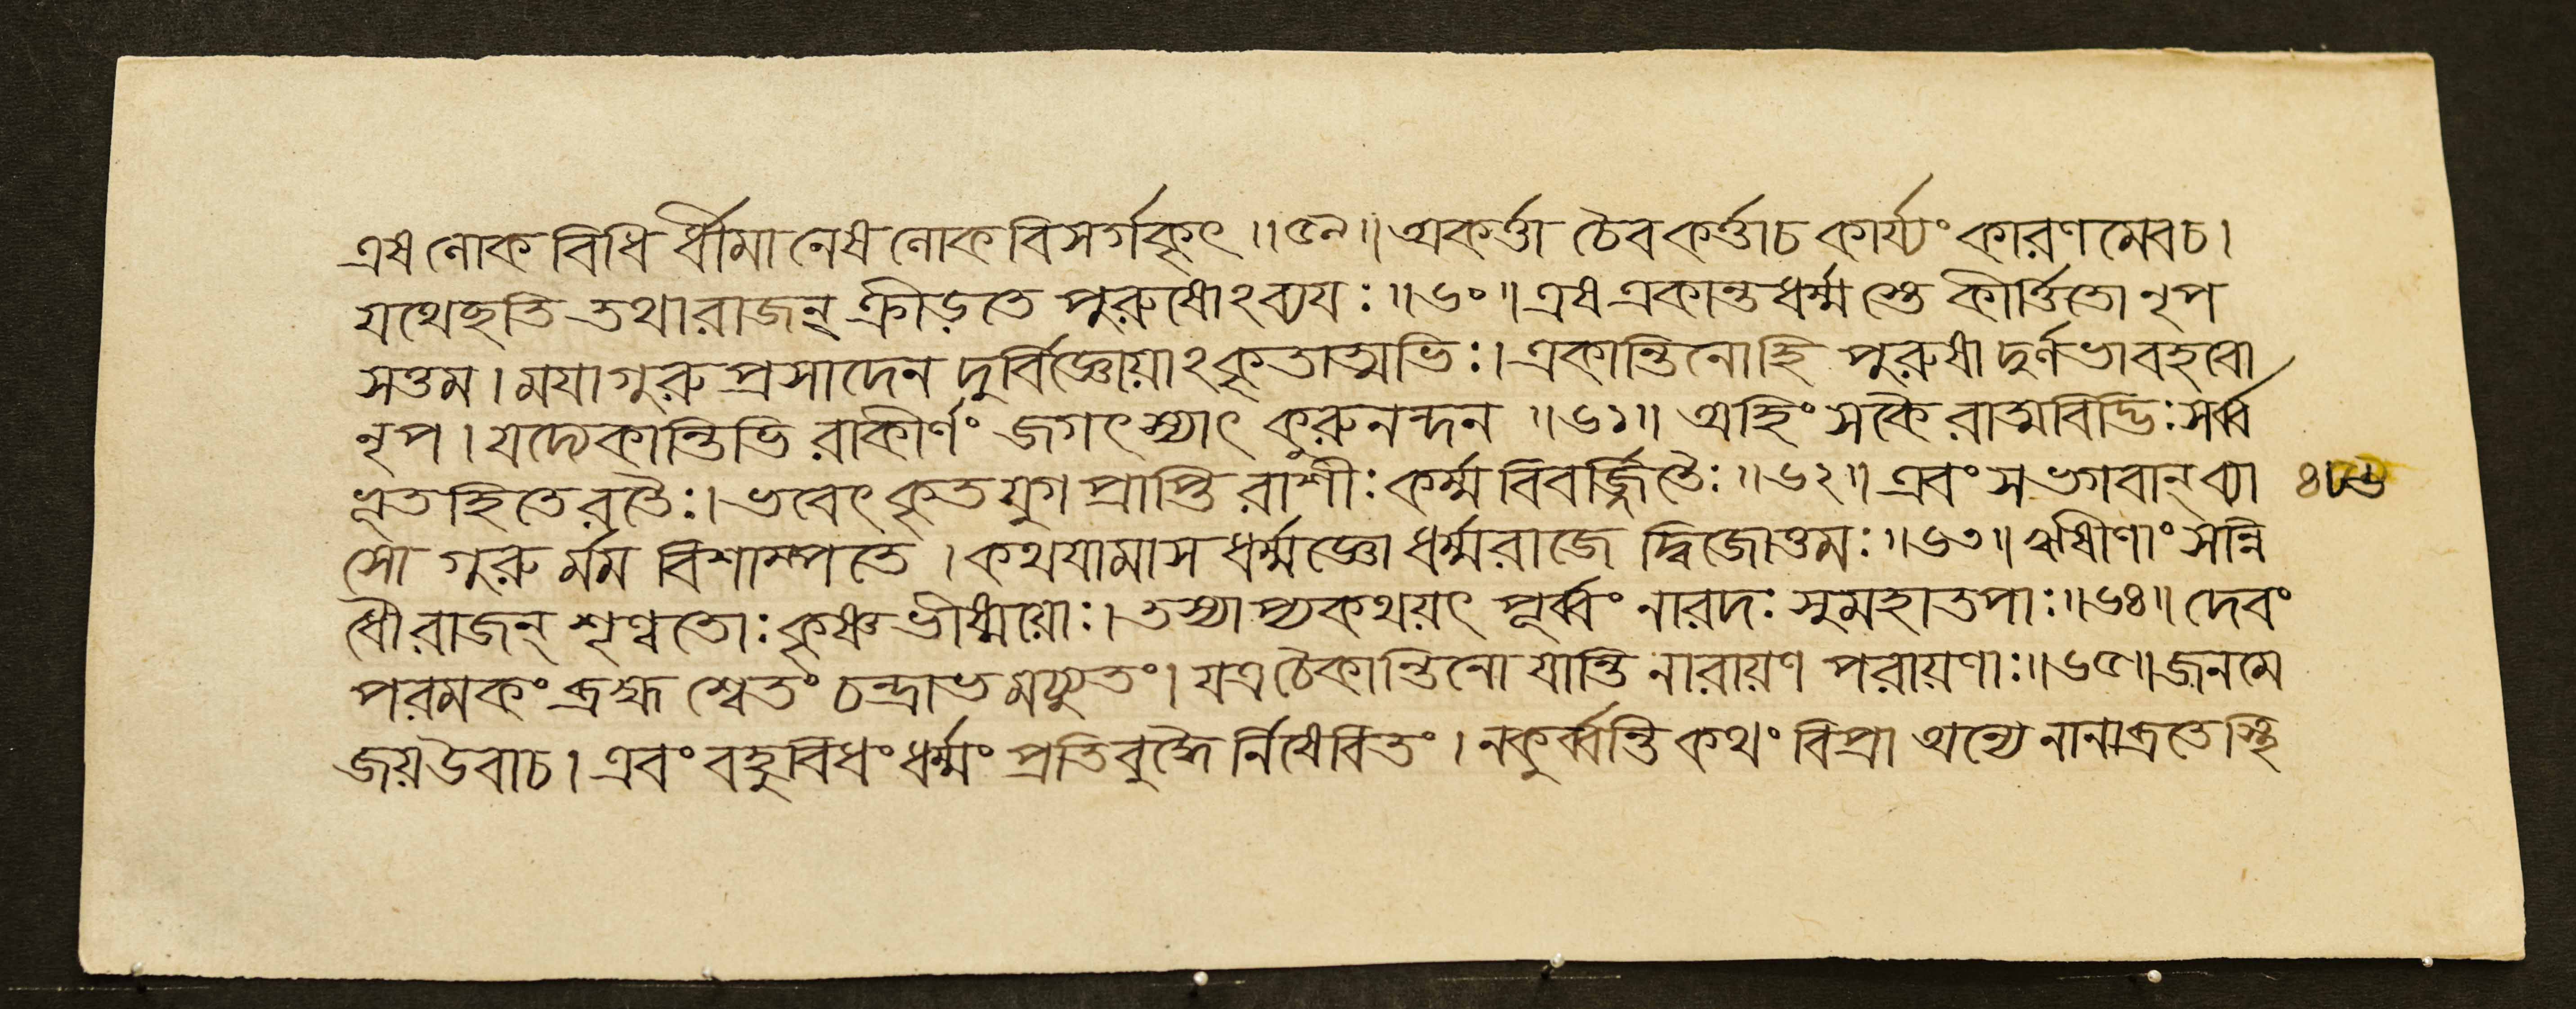 এষ লোক বিধি র্ধীমানেষ লোক বিসর্গকৃৎ ॥৫৯॥ অকর্ত্তা চৈব কর্ত্তাচ কার্য্যং কারণ মেবচ।
যথেছতি তথা রাজন্ ক্রীড়তে পুরুষোঽব্যয়ঃ ॥৬০॥ এষ একান্ত ধর্ম্ম স্তে কীর্ত্তিতো নৃপ
সত্তম। ময়া গুরু প্রসাদেন দুর্বিজ্ঞেয়োঽকৃতাত্মভিঃ। একান্তিনোহি পুরুষা দুর্লভা বহবো
নৃপ। যদ্যেকান্তিভি রাকীর্ণং জগৎ স্যাৎ কুরুনন্দন ॥৬১॥ অহিংসকৈ রাত্মবিদ্ভিঃ সর্ব্ব
ভূত হিতে রতৈঃ। ভবেৎ কৃত যুগ প্রাপ্তি রাশীঃ কর্ম্ম বিবর্জ্জিতৈঃ ॥৬২॥ এবং স ভগবান্ ব্যা
সো গুরু র্মম বিশাম্পতে। কথয়ামাস ধর্ম্মজ্ঞো ধর্ম্মরাজে দ্বিজোত্তমঃ ॥৬৩॥ ঋষীণাং সন্নি
ধৌ রাজন্ শৃণ্বতোঃ কৃষ্ণ ভীষ্ময়োঃ। তস্যাপ্যকথয়ৎ পূর্ব্বং নারদঃ সুমহাতপাঃ ॥৬৪॥ দেবং
পরমকং ব্রহ্ম শ্বেতং চন্দ্রাভ মচ্যুতং। যত্র চৈকান্তিনো যান্তি নারায়ণ পরায়ণাঃ ॥৬৫॥ জনমে
জয় উবাচ। এবং বহুবিধং ধর্ম্মং প্রতিবুদ্ধৈ র্নিষেবিতং। ন কুর্ব্বন্তি কথং বিপ্রা অন্যে নানাব্রতে স্থি